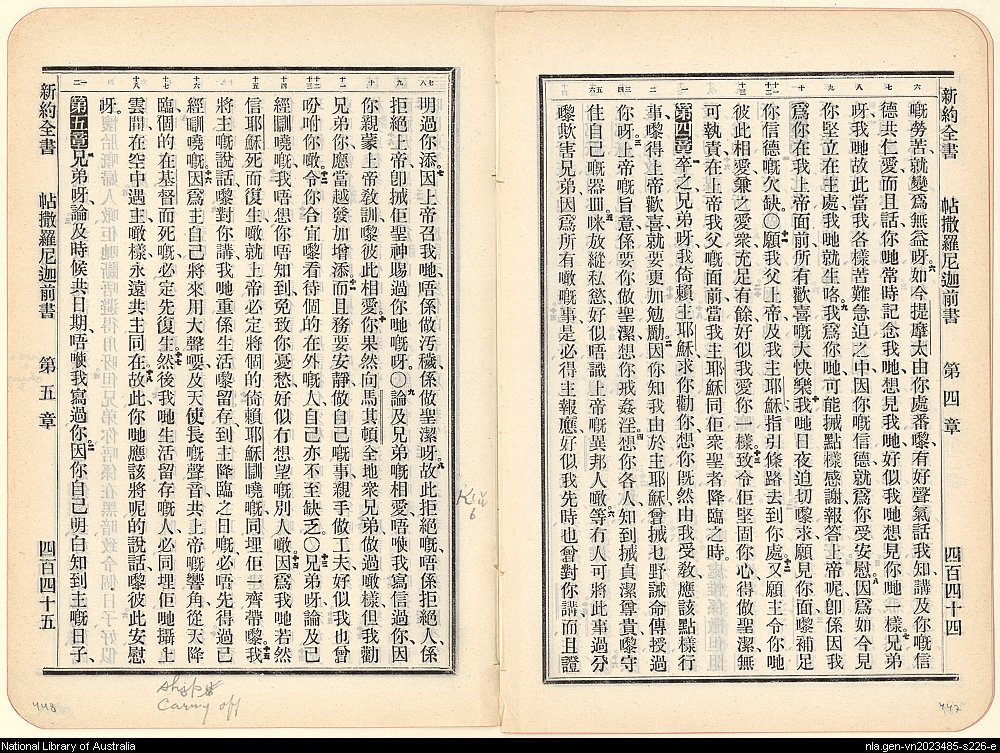 新約全書 帖撒羅尼迦前書 第四章 四百四十四
嘅勞苦就變爲無益呀如今提摩太由你處番嚟有好聲氣話我知講及你嘅信
德共仁愛而且話你哋常時記念我哋想見我哋好似我哋想見你哋一樣兄弟
呀我哋故此當我各樣苦難急迫之中因你嘅信德就爲你受安慰因爲如今見
你堅立在主處我哋就生咯我爲你哋可能
點樣感謝報答上帝呢卽係因我
爲你在我上帝面前所有歡喜嘅大快樂我哋日夜迫切嚟求願見你面嚟補足
你信德嘅欠缺〇願我父上帝及我主耶穌指引條路去到你處又願主令你哋
彼此相愛兼之愛衆充足有餘好似我愛你一樣致令佢堅固你心得做聖潔無
可執責在上帝我父嘅面前當我主耶穌同佢衆聖者降臨之時
第四章 卒之兄弟呀我倚賴主耶穌求你勸你想你既然由我受教應該點樣行
事嚟得上帝歡喜就要更加勉勵因你知我由於主耶穌曾
乜野誡命傳授過
你呀上帝嘅旨意係要你做聖潔想你戒姦淫想你各人知到
貞潔尊貴嚟守
住自己嘅器皿咪放縱私慾好似唔識上帝嘅異邦人噉等有人可將此事過分
嚟欺害兄弟因爲所有噉嘅事是必得主報應好似我先時也曾對你講而且證
明過你添因上帝召我哋唔係做汚穢係做聖潔呀故此拒絕嘅唔係拒絕人係
拒絕上帝卽
佢聖神賜過你哋嘅呀〇論及兄弟嘅相愛唔使我寫信過你因
你親蒙上帝敎訓嚟彼此相愛你果然向馬其頓全地衆兄弟做過噉樣但我勸
兄弟你應當越發加增添而且務要安靜做自己嘅事親手做工夫好似我也曾
吩咐你噉令你合宜嚟看待個的在外嘅人自己亦不至缺乏〇兄弟呀論及已
經瞓嘵嘅我唔想你唔知到免致你憂愁好似冇想望嘅別人噉因爲我哋若然
信耶穌死而復生噉就上帝必定將個的倚賴耶穌瞓嘵嘅同埋佢一齊帶嚟我
將主嘅說話嚟對你講我哋重係生活嚟留存到主降臨之日嘅必唔先得過已
經瞓嘵嘅因爲主自己將來用大聲
及天使長嘅聲音共上帝嘅響角從天降
臨個的在基督而死嘅必定先復生然後我哋生活留存嘅人必同埋佢哋攝上
雲間在空中遇主噉樣永遠共主同在故此你哋應該將呢的說話嚟彼此安慰
呀
第五章 兄弟呀論及時候共日期唔使我寫過你因你自己明白知到主嘅日子
新約全書 帖撒羅尼迦前書 第五章 四百四十五
Carny off
448
447
National Library of Australia
nla.gen-vn2023485-s226-e